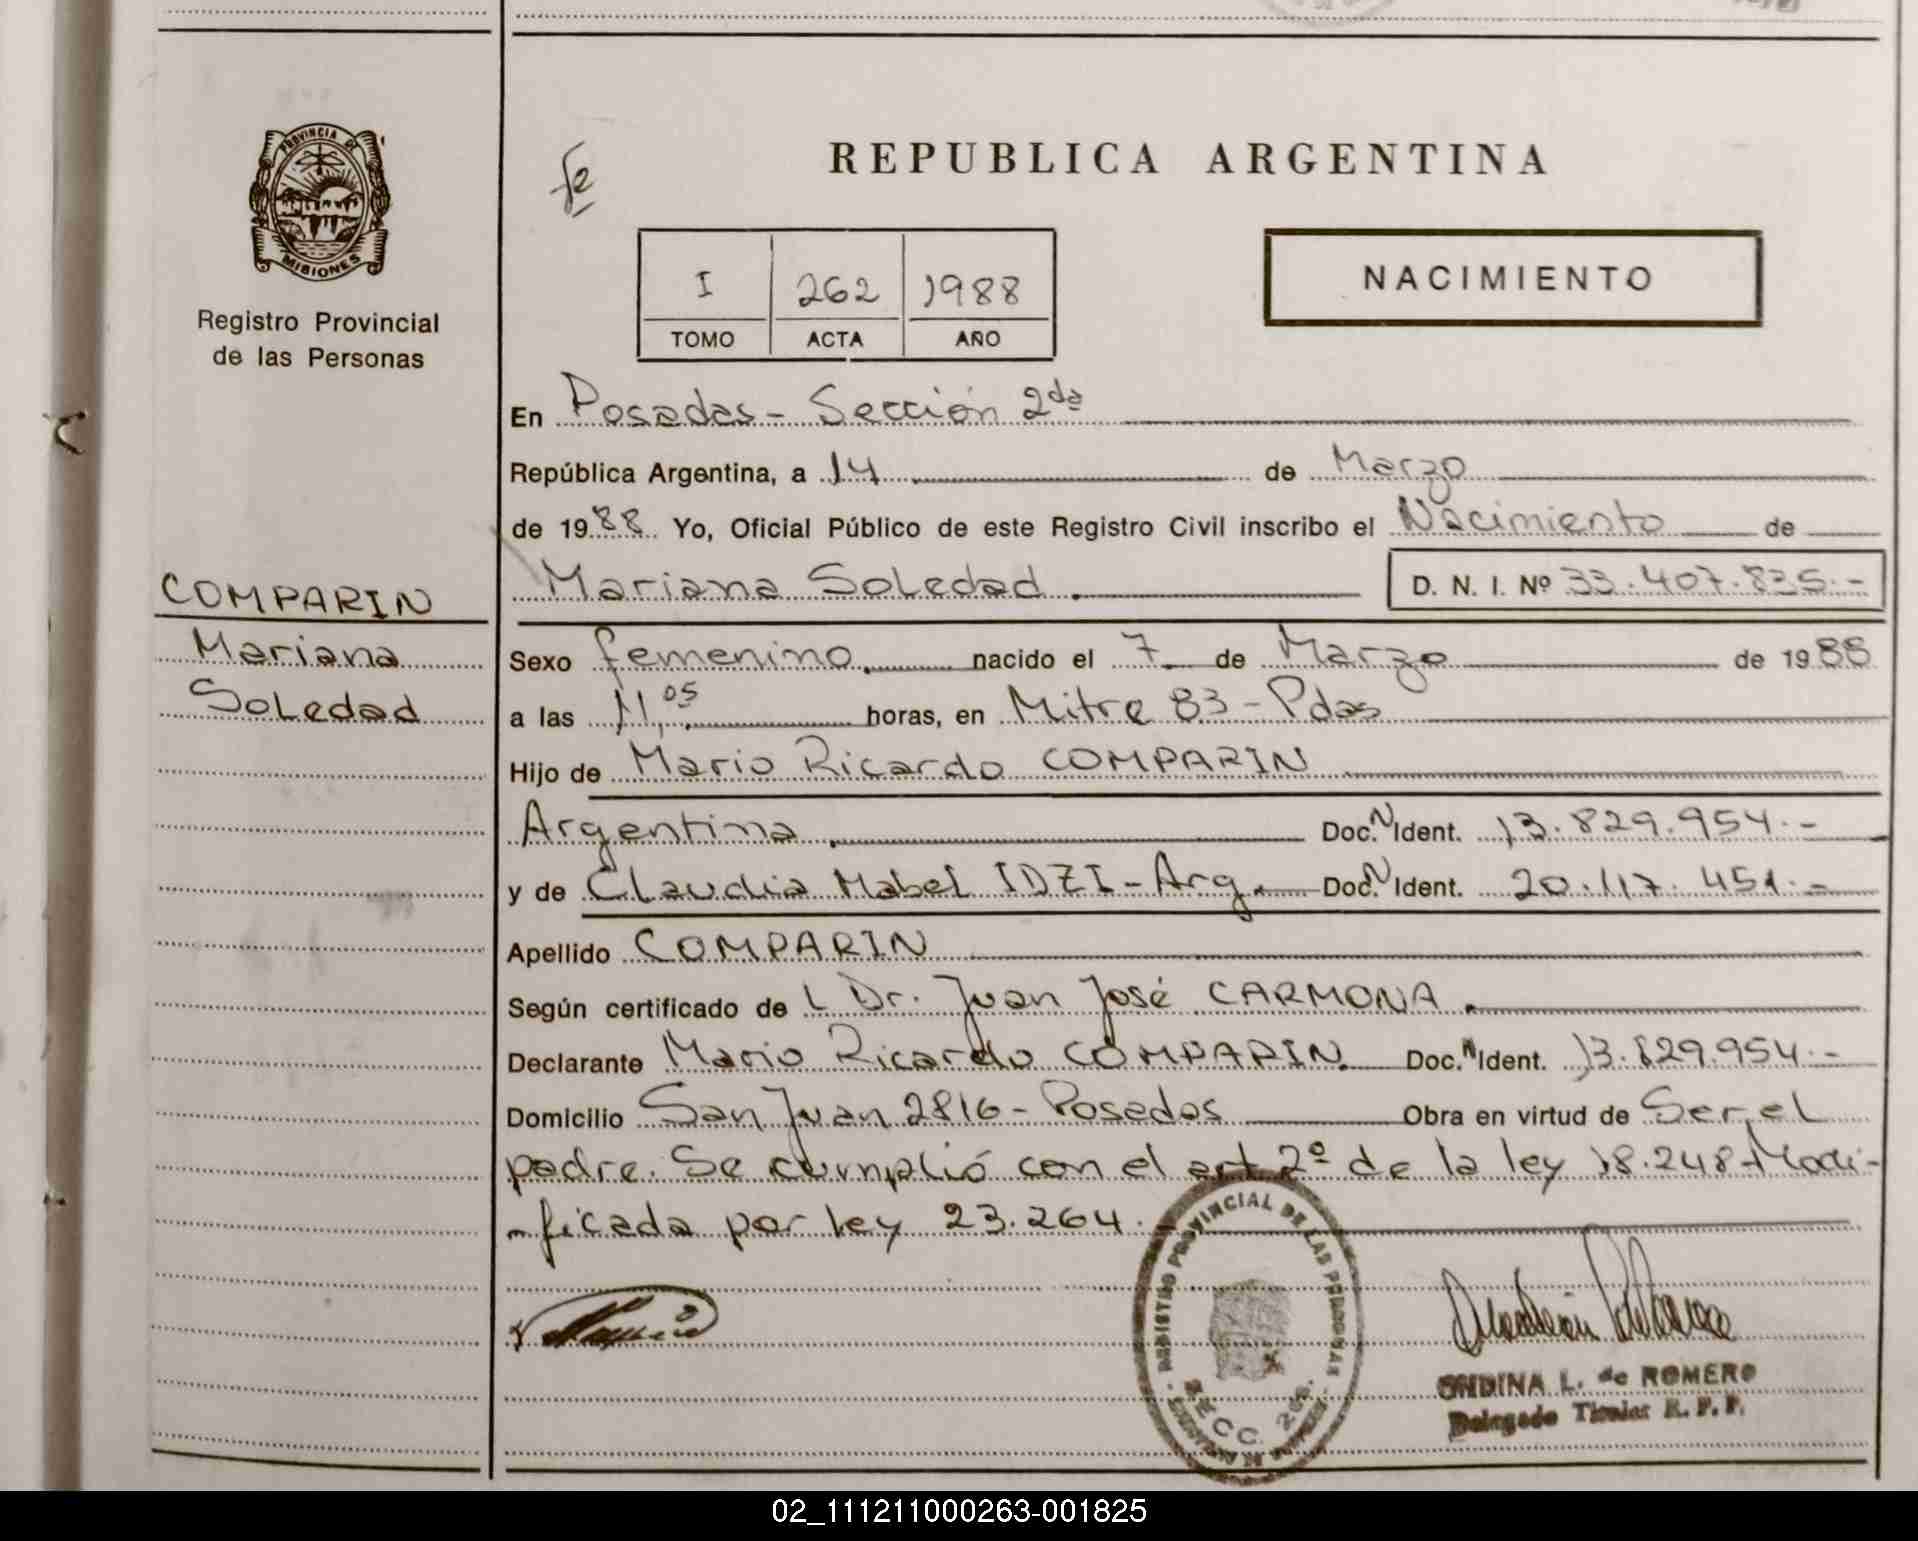 PROVINCIA DE
MISIONES
Registro Provincial
de las Personas
COMPARIN
Mariana
Soledad
REPUBLICA ARGENTINA
I 262 1988
TOMO ACTA AÑO
NACIMIENTO
En Posadas - Sección 2da
República Argentina, a 14 de Marzo
de 1988 Yo, Oficial Público de este Registro Civil inscribo el Nacimiento de
Mariana Soledad. D. N. I. Nº 33.407.835.-
Sexo femenino. nacido el 7 de Marzo de 1988
a las 11,05 horas, en Mitre 83 - Pdas
Hijo de Mario Ricardo COMPARIN
Argentina. Doc. N Ident. 13.829.954.-
y de Claudia Mabel IDZI - Arg. Doc. N Ident. 20.117.451.-
Apellido COMPARIN
Según certificado de L Dr. Juan José CARMONA.
Declarante Mario Ricardo COMPARIN. Doc. N Ident. 13.829.954.-
Domicilio San Juan 2816 - Posadas Obra en virtud de Ser el
padre. Se cumplió con el art 2º de la ley 18.248 - Modi-
-ficada por ley 23.264.-
REGISTRO PROVINCIAL DE LAS PERSONAS
SECC. 2da.
ONDINA L. de ROMERO
Delegado Titular R. P. P.
02_111211000263-001825